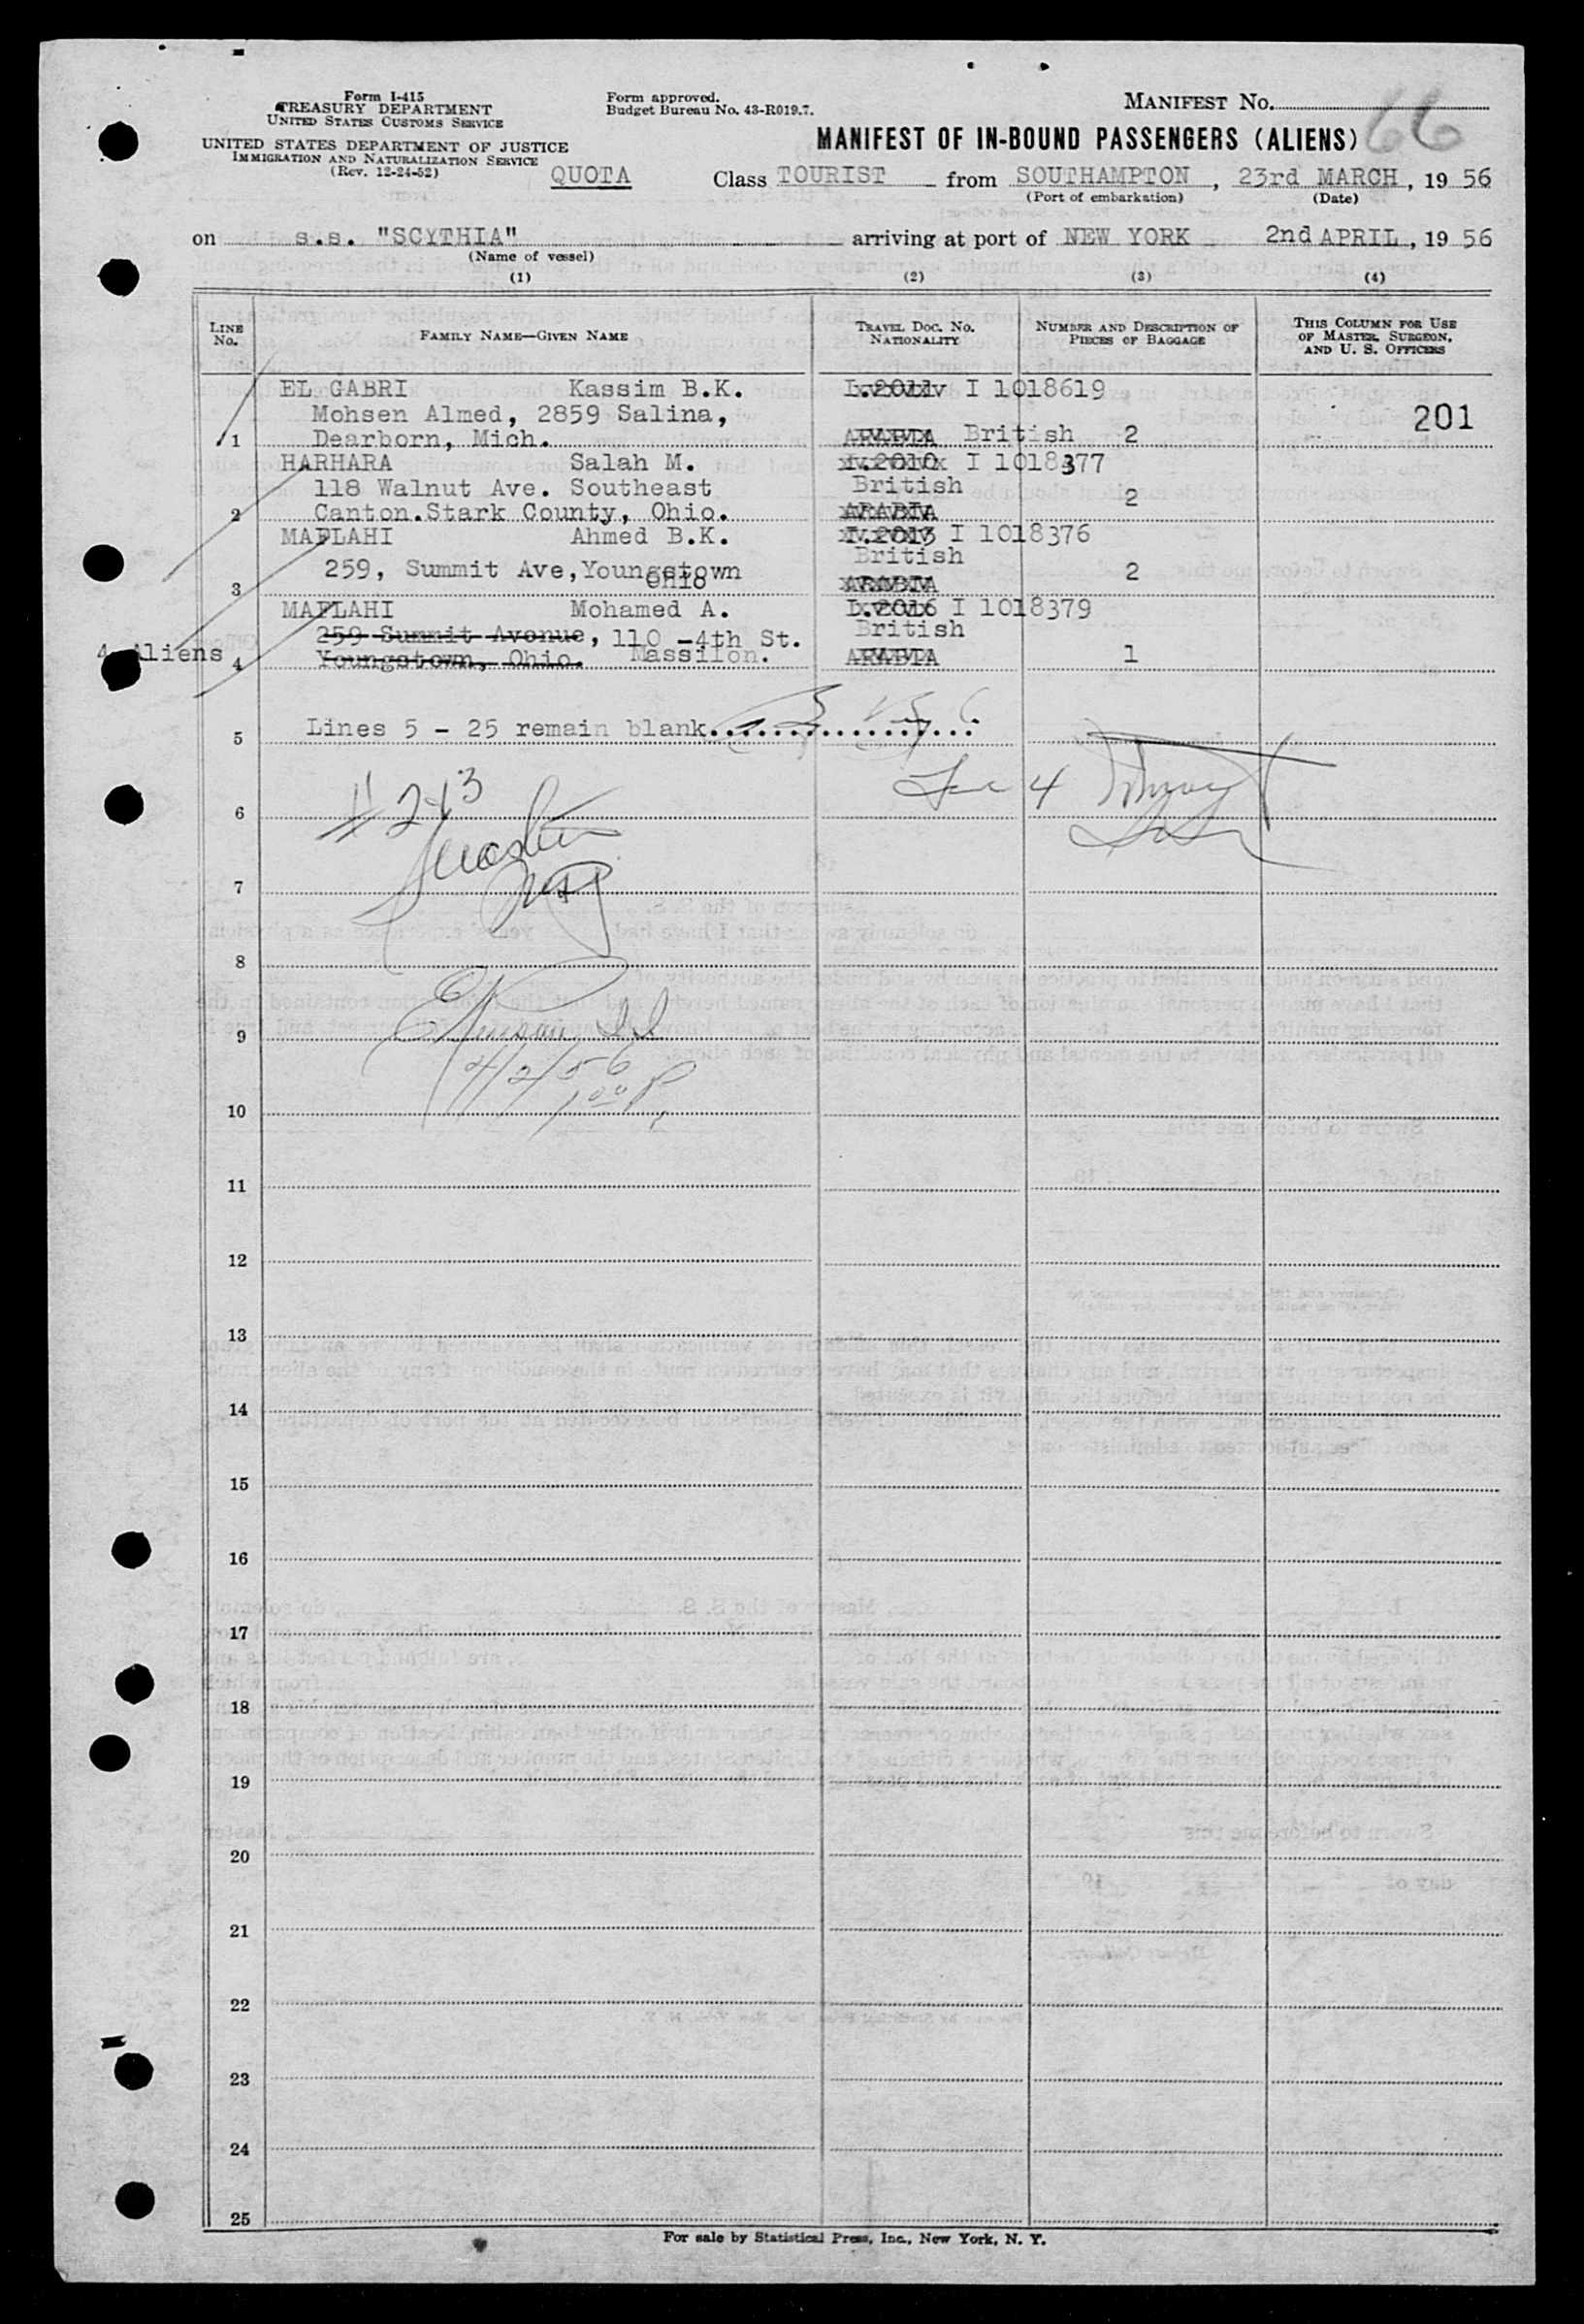 Form I-415
TREASURY DEPARTMENT
UNITED STATES CUSTOMS SERVICE
UNITED STATES DEPARTMENT OF JUSTICE
IMMIGRATION AND NATURALIZATION SERVICE
(Rev. 12-24-52)
Form approved.
Budget Bureau No. 43-R019.7.
MANIFEST No.
66
MANIFEST OF IN-BOUND PASSENGERS (ALIENS)
QUOTA Class TOURIST from SOUTHAMPTON, 23rd MARCH, 19 56
(Port of embarkation) (Date)
on s.s. "SCYTHIA" arriving at port of NEW YORK 2nd APRIL, 19 56
(Name of vessel)
(1) (2) (3) (4)
LINE No. FAMILY NAME—GIVEN NAME TRAVEL DOC. No. NATIONALITY NUMBER AND DESCRIPTION OF PIECES OF BAGGAGE THIS COLUMN FOR USE OF MASTER, SURGEON, AND U. S. OFFICERS
EL GABRI Kassim B.K. I 1018619
Mohsen Almed, 2859 Salina, 201
1 Dearborn, Mich. ARABIA British 2
HARHARA Salah M. I 1018377
118 Walnut Ave. Southeast British 2
2 Canton.Stark County, Ohio. ARABIA
MAFLAHI Ahmed B.K. I 1018376
British
259, Summit Ave,Youngstown 2
3 Ohio ARABIA
MAFLAHI Mohamed A. I 1018379
259 Summit Avenue, 110 -4th St. British
4 Aliens 4 Youngstown, Ohio. Massilon. ARABIA 1
5 Lines 5 - 25 remain blank.................
6 #243 4
7
8
9
4/2/56
10 1 00 P
11
12
13
14
15
16
17
18
19
20
21
22
23
24
25
For sale by Statistical Press, Inc., New York, N. Y.